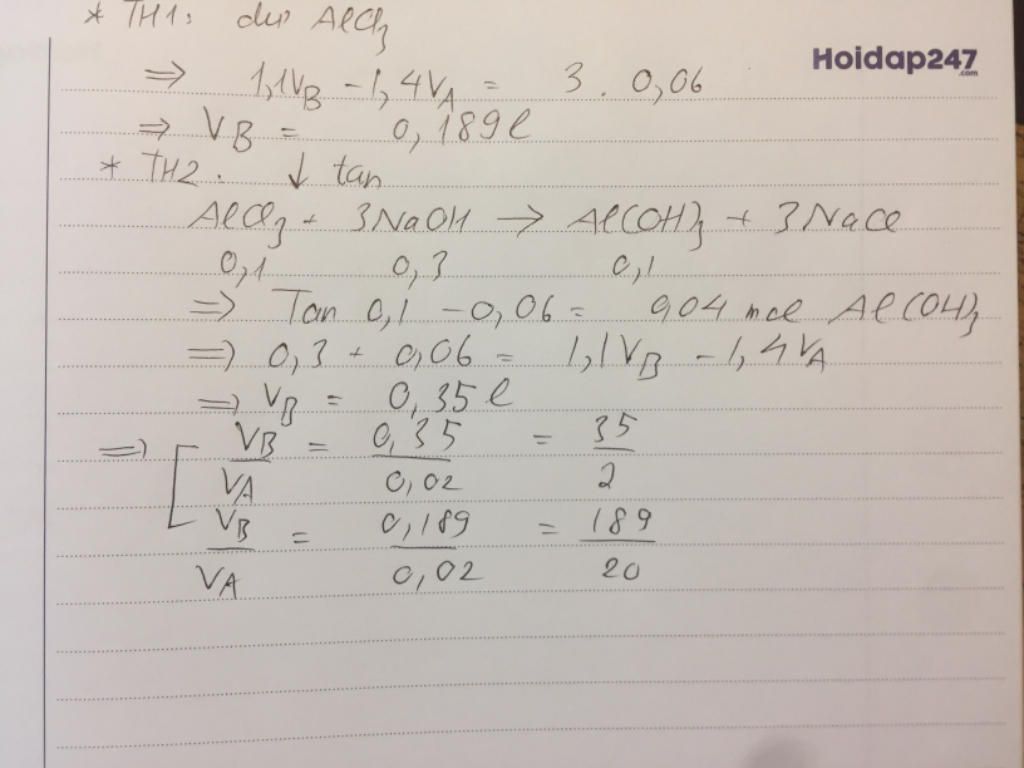 * TH1: dư AlCl3
Hoidap247
.com
=> 1,1VB - 1,4VA = 3 . 0,06
=> VB = 0,189l
* TH2. ↓ tan
AlCl3 + 3NaOH → Al(OH)3 + 3NaCl
0,1 0,3 0,1
=> Tan 0,1 - 0,06 = 0,04 mol Al(OH)3
=> 0,3 + 0,06 = 1,1VB - 1,4VA
=> VB = 0,35l
=> VB/VA = 0,35/0,02 = 35/2
VB/VA = 0,189/0,02 = 189/20